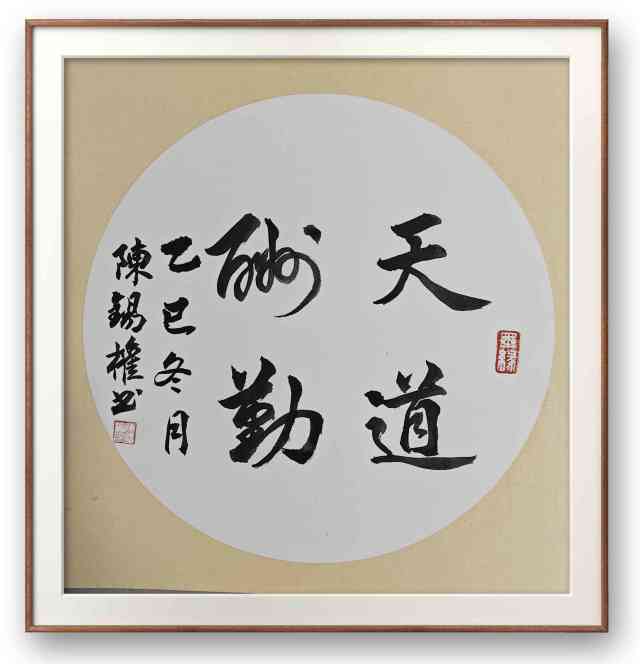 天道
酬勤
乙巳冬月
陳錫權书